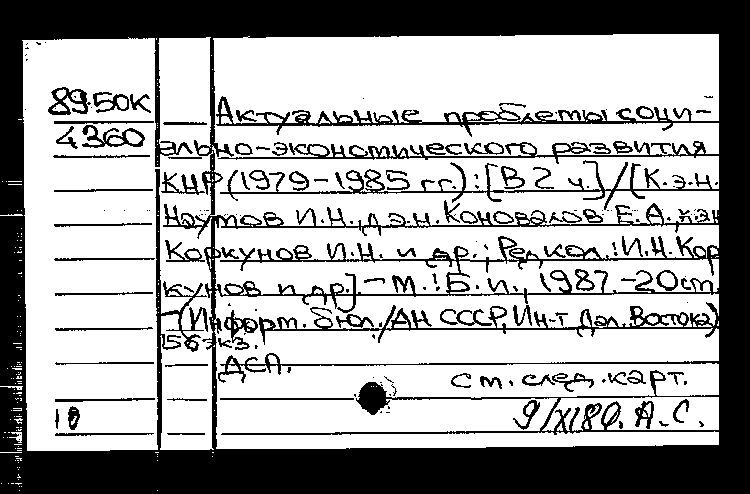 89-50К
4360
Актуальные проблемы соци-
ально-экономического развития
КНР (1979-1985 гг.): [В 2 ч.] / [К.э.н.
Наумов И.Н., д.э.н. Коновалов Е.А., к.эн
Коркунов И.Н. и др.; Редкол.: И.Н. Кор
кунов и др.] - М.: Б. и., 1987. - 20 см.
- (Информ. бюл. / АН СССР, Ин-т Дал. Востока)
156 экз.
ДСП.
См. след. карт.
18
9/XI89. А.С.